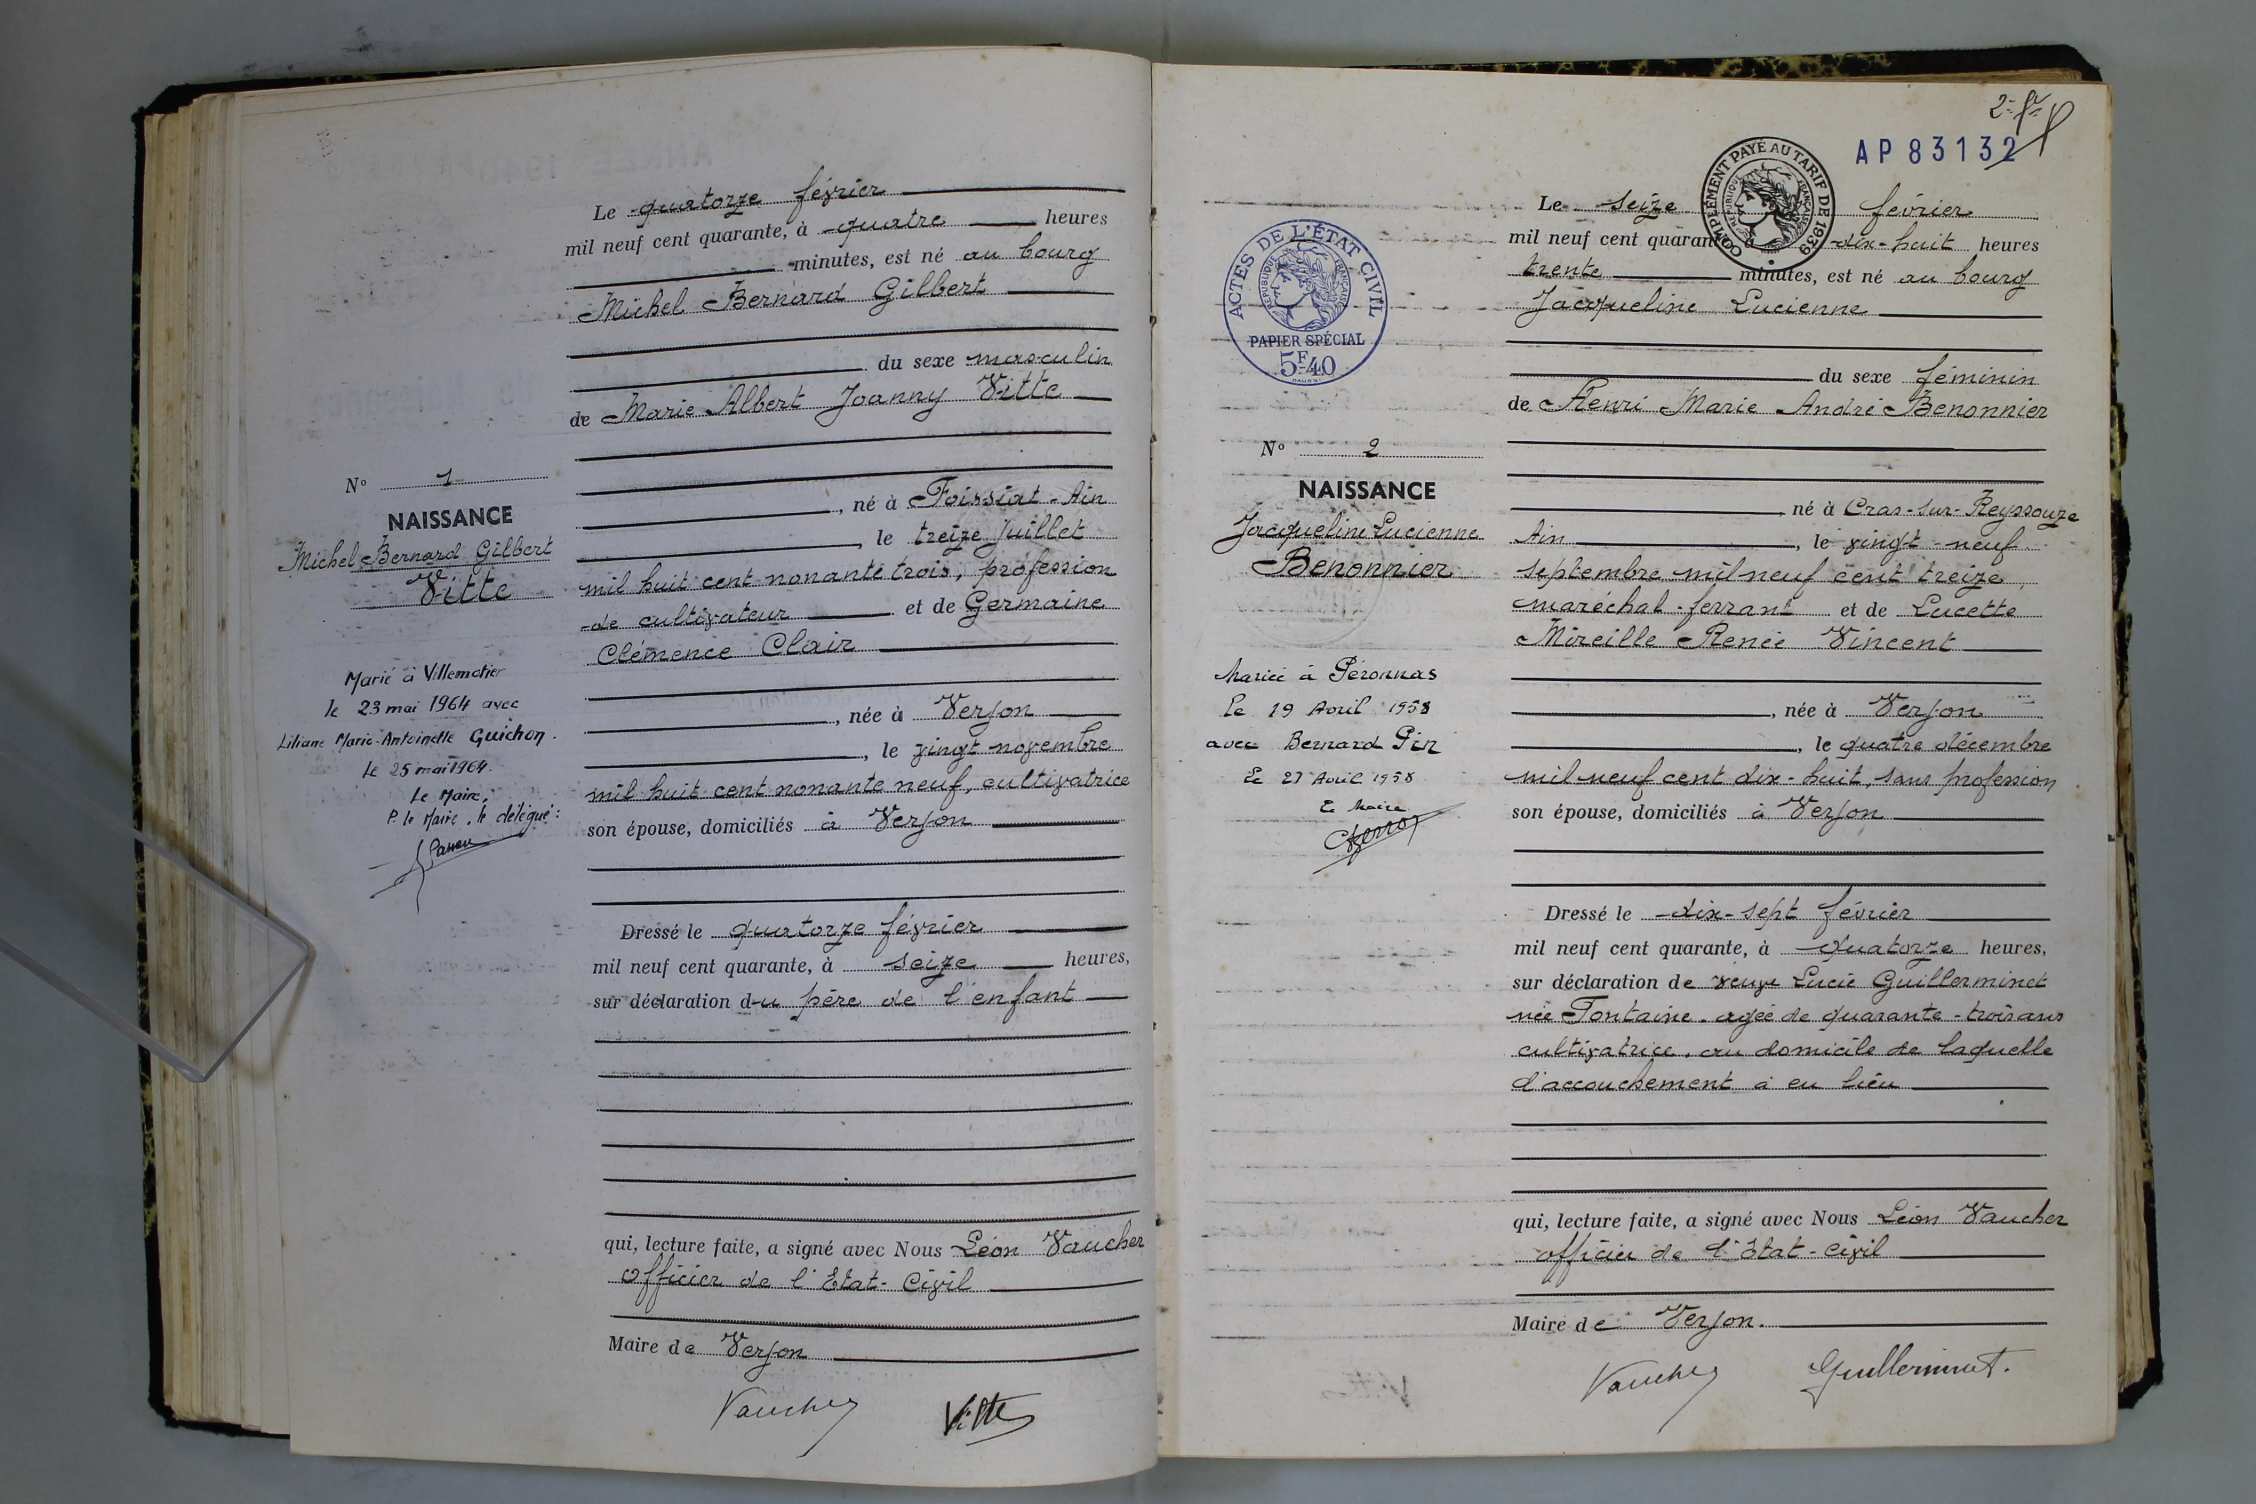 Le quatorze février
mil neuf cent quarante, à quatre heures
minutes, est né au bourg
Michel Bernard Gilbert
du sexe masculin
de Marie Albert Joanny Vitte
né à Foissiat - Ain
, le treize Juillet
mil huit cent nonante trois, profession
de cultivateur et de Germaine
Clémence Clair
, née à Verjon
, le vingt novembre
mil huit cent nonante neuf, cultivatrice
son épouse, domiciliés à Verjon
Dressé le quatorze février
mil neuf cent quarante, à seize heures,
sur déclaration du père de l'enfant
qui, lecture faite, a signé avec Nous Léon Vaucher
officier de l'Etat-Civil
Maire de Verjon
Vaucher Vitte
N° 1
NAISSANCE
Michel Bernard Gilbert
Vitte
Marié à Villemotier
le 23 mai 1964 avec
Liliane Marie-Antoinette Guichon.
le 25 mai 1964.
Le Maire,
P. le Maire, le délégué:
2
AP 83132
COMPLÉMENT PAYÉ AU TARIF DE 1939
RÉPUBLIQUE FRANÇAISE
Le seize février
mil neuf cent quarante, à dix-huit heures
trente minutes, est né au bourg
Jacqueline Lucienne
du sexe féminin
de Henri Marie André Benonnier
né à Cras-sur-Reyssouze
Ain , le vingt-neuf
septembre mil neuf cent treize,
maréchal-ferrant et de Lucette
Mireille Renée Vincent
, née à Verjon
, le quatre décembre
mil neuf cent dix-huit, sans profession
son épouse, domiciliés à Verjon
Dressé le dix-sept février
mil neuf cent quarante, à quatorze heures,
sur déclaration de veuve Lucie Guillerminet
née Fontaine, agée de quarante-trois ans
cultivatrice, au domicile de laquelle
l'accouchement a eu lieu
qui, lecture faite, a signé avec Nous Léon Vaucher
officier de l'état-civil
Maire de Verjon.
Vaucher Guillerminet.
ACTES DE L'ÉTAT CIVIL
RÉPUBLIQUE FRANÇAISE
PAPIER SPÉCIAL
5F40
N° 2
NAISSANCE
Jacqueline Lucienne
Benonnier
Mariée à Péronnas
le 19 Avril 1958
avec Bernard Pin
Le 21 Avril 1958
Le Maire